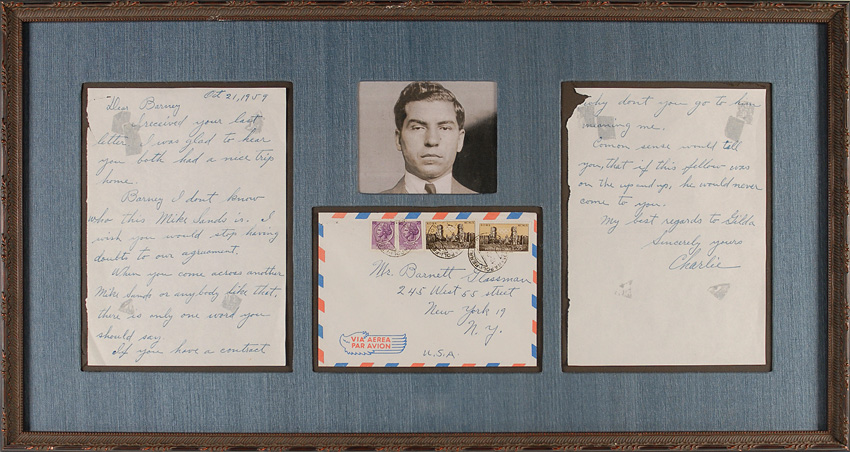 Oct 21, 1959
Dear Barney
I received your last
letter I was glad to hear
you both had a nice trip
home.
Barney I dont know
who this Mike Sands is. I
wish you would stop having
doubts to our agruement.
When you come across another
Mike Sands or anybody like that,
there is only one word you
should say.
If you have a contract
Mr. Barnett Glassman
245 West 55 street
New York 19
N. Y.
U.S.A.
VIA AEREA
PAR AVION
why don't you go to him
meaning me.
Comon sense would tell
you, that if this fellow was
on the up and up, he would never
come to you.
My best regards to Gilda
Sincerely yours
Charlie